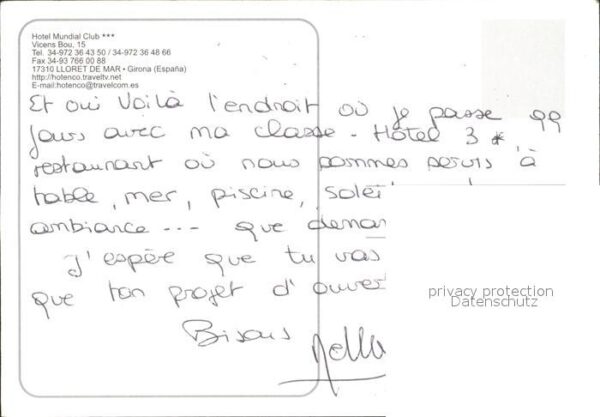 Hotel Mundial Club ***
Vicens Bou, 15
Tel. 34-972 36 43 50 / 34-972 36 48 66
Fax 34-93 766 00 88
17310 LLORET DE MAR - Girona (España)
http://hotenco.traveltv.net
E-mail:hotenco@travelcom.es
Et oui Voilà l'endroit où je passe
jours avec ma classe - Hôtel 3 *,
restaurant où nous sommes servis à
table, mer, piscine, soleil
ambiance --- que deman
J'espère que tu vas
que ton projet d'ouver
Bisous
privacy protection
Datenschutz